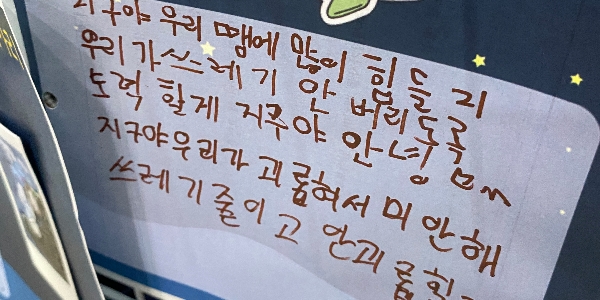 지구야 우리 땜에 많이 힘들지
우리가 쓰레기 안 버리도록
노력 할게 지구야 안녕
지구야 우리가 괴롭혀서 미안해
쓰레기 줄이고 안괴롭힐